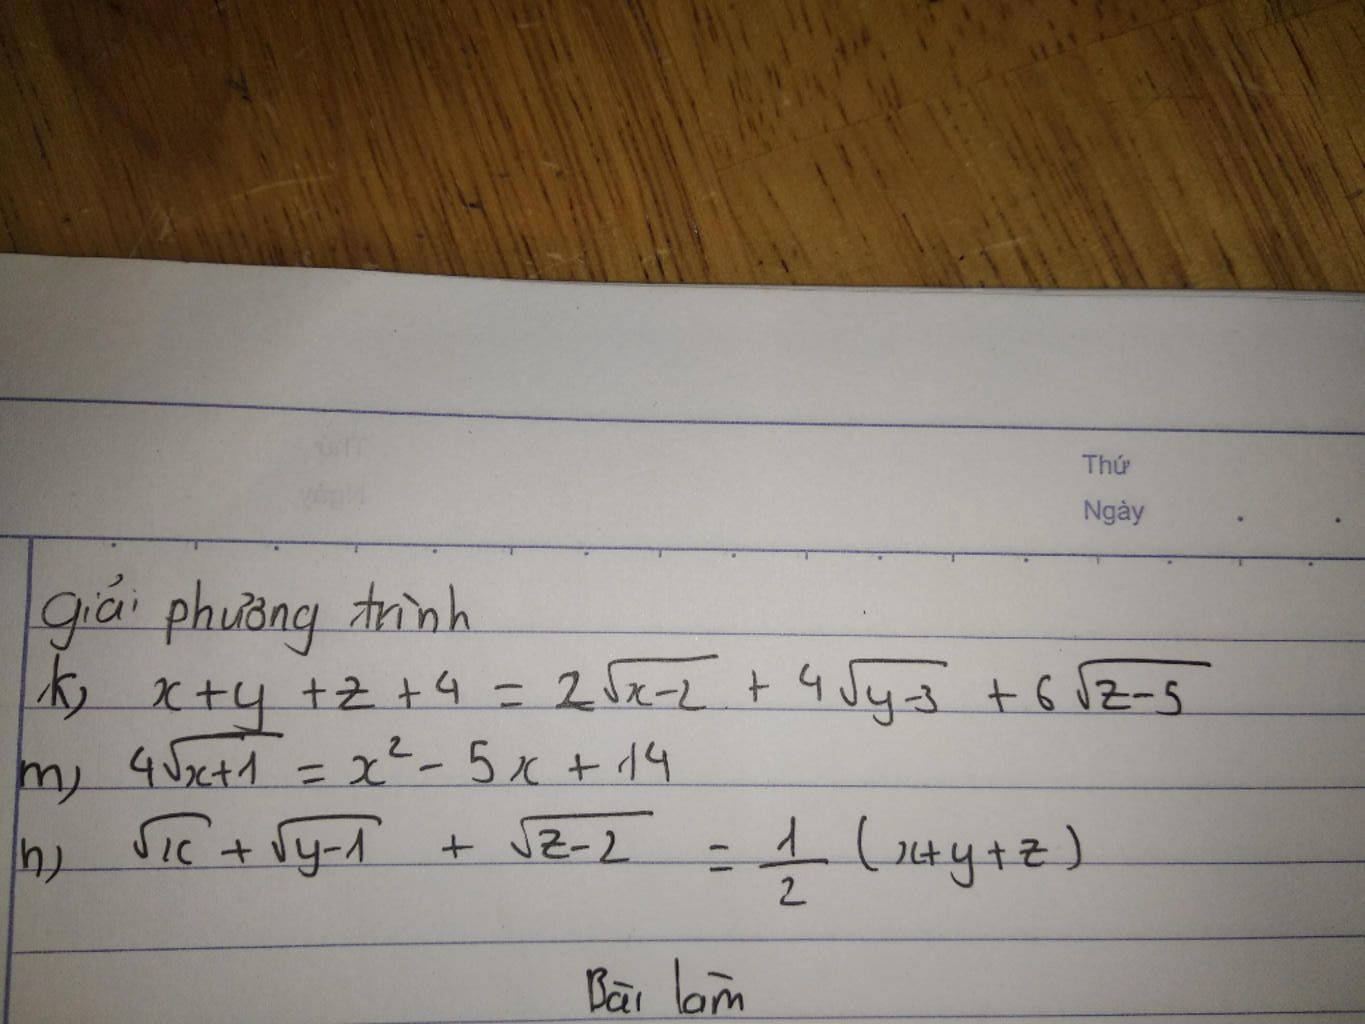 Thứ
Ngày
giải phương trình
k, x+y+z+4 = 2√x-2 + 4√y-3 + 6√z-5
m, 4√x+1 = x² - 5x + 14
n, √x + √y-1 + √z-2 = 1/2 (x+y+z)
Bài làm